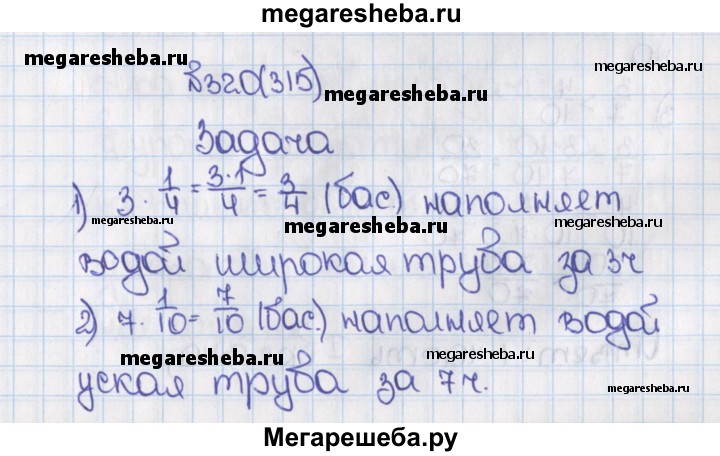 megaresheba.ru
megaresheba.ru
№320(315)
megaresheba.ru
Задача
1) 3 · 1/4 = 3·1/4 = 3/4 (бас.) наполняет
megaresheba.ru
megaresheba.ru
водой широкая труба за 3ч
2) 7 · 1/10 = 7/10 (бас.) наполняет водой
megaresheba.ru
megaresheba.ru
уская труба за 7ч.
megaresheba.ru
Мегарешеба.ру